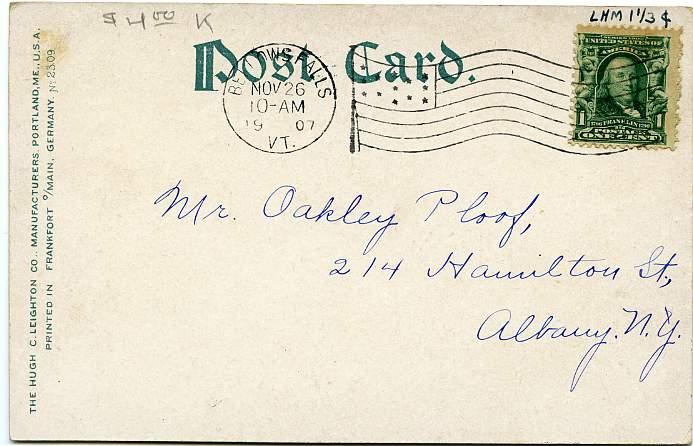 $4.00 K
LHM 1 1/3 ¢
Post Card.
BELLOWS FALLS
NOV 26
10-AM
1907
VT.
FRANKLIN
POSTAGE
1 ONE CENT 1
Mr. Oakley Ploof,
214 Hamilton St.,
Albany. N.Y.
THE HUGH C. LEIGHTON CO., MANUFACTURERS, PORTLAND, ME., U.S.A.
PRINTED IN FRANKFORT o/MAIN, GERMANY. No 2309